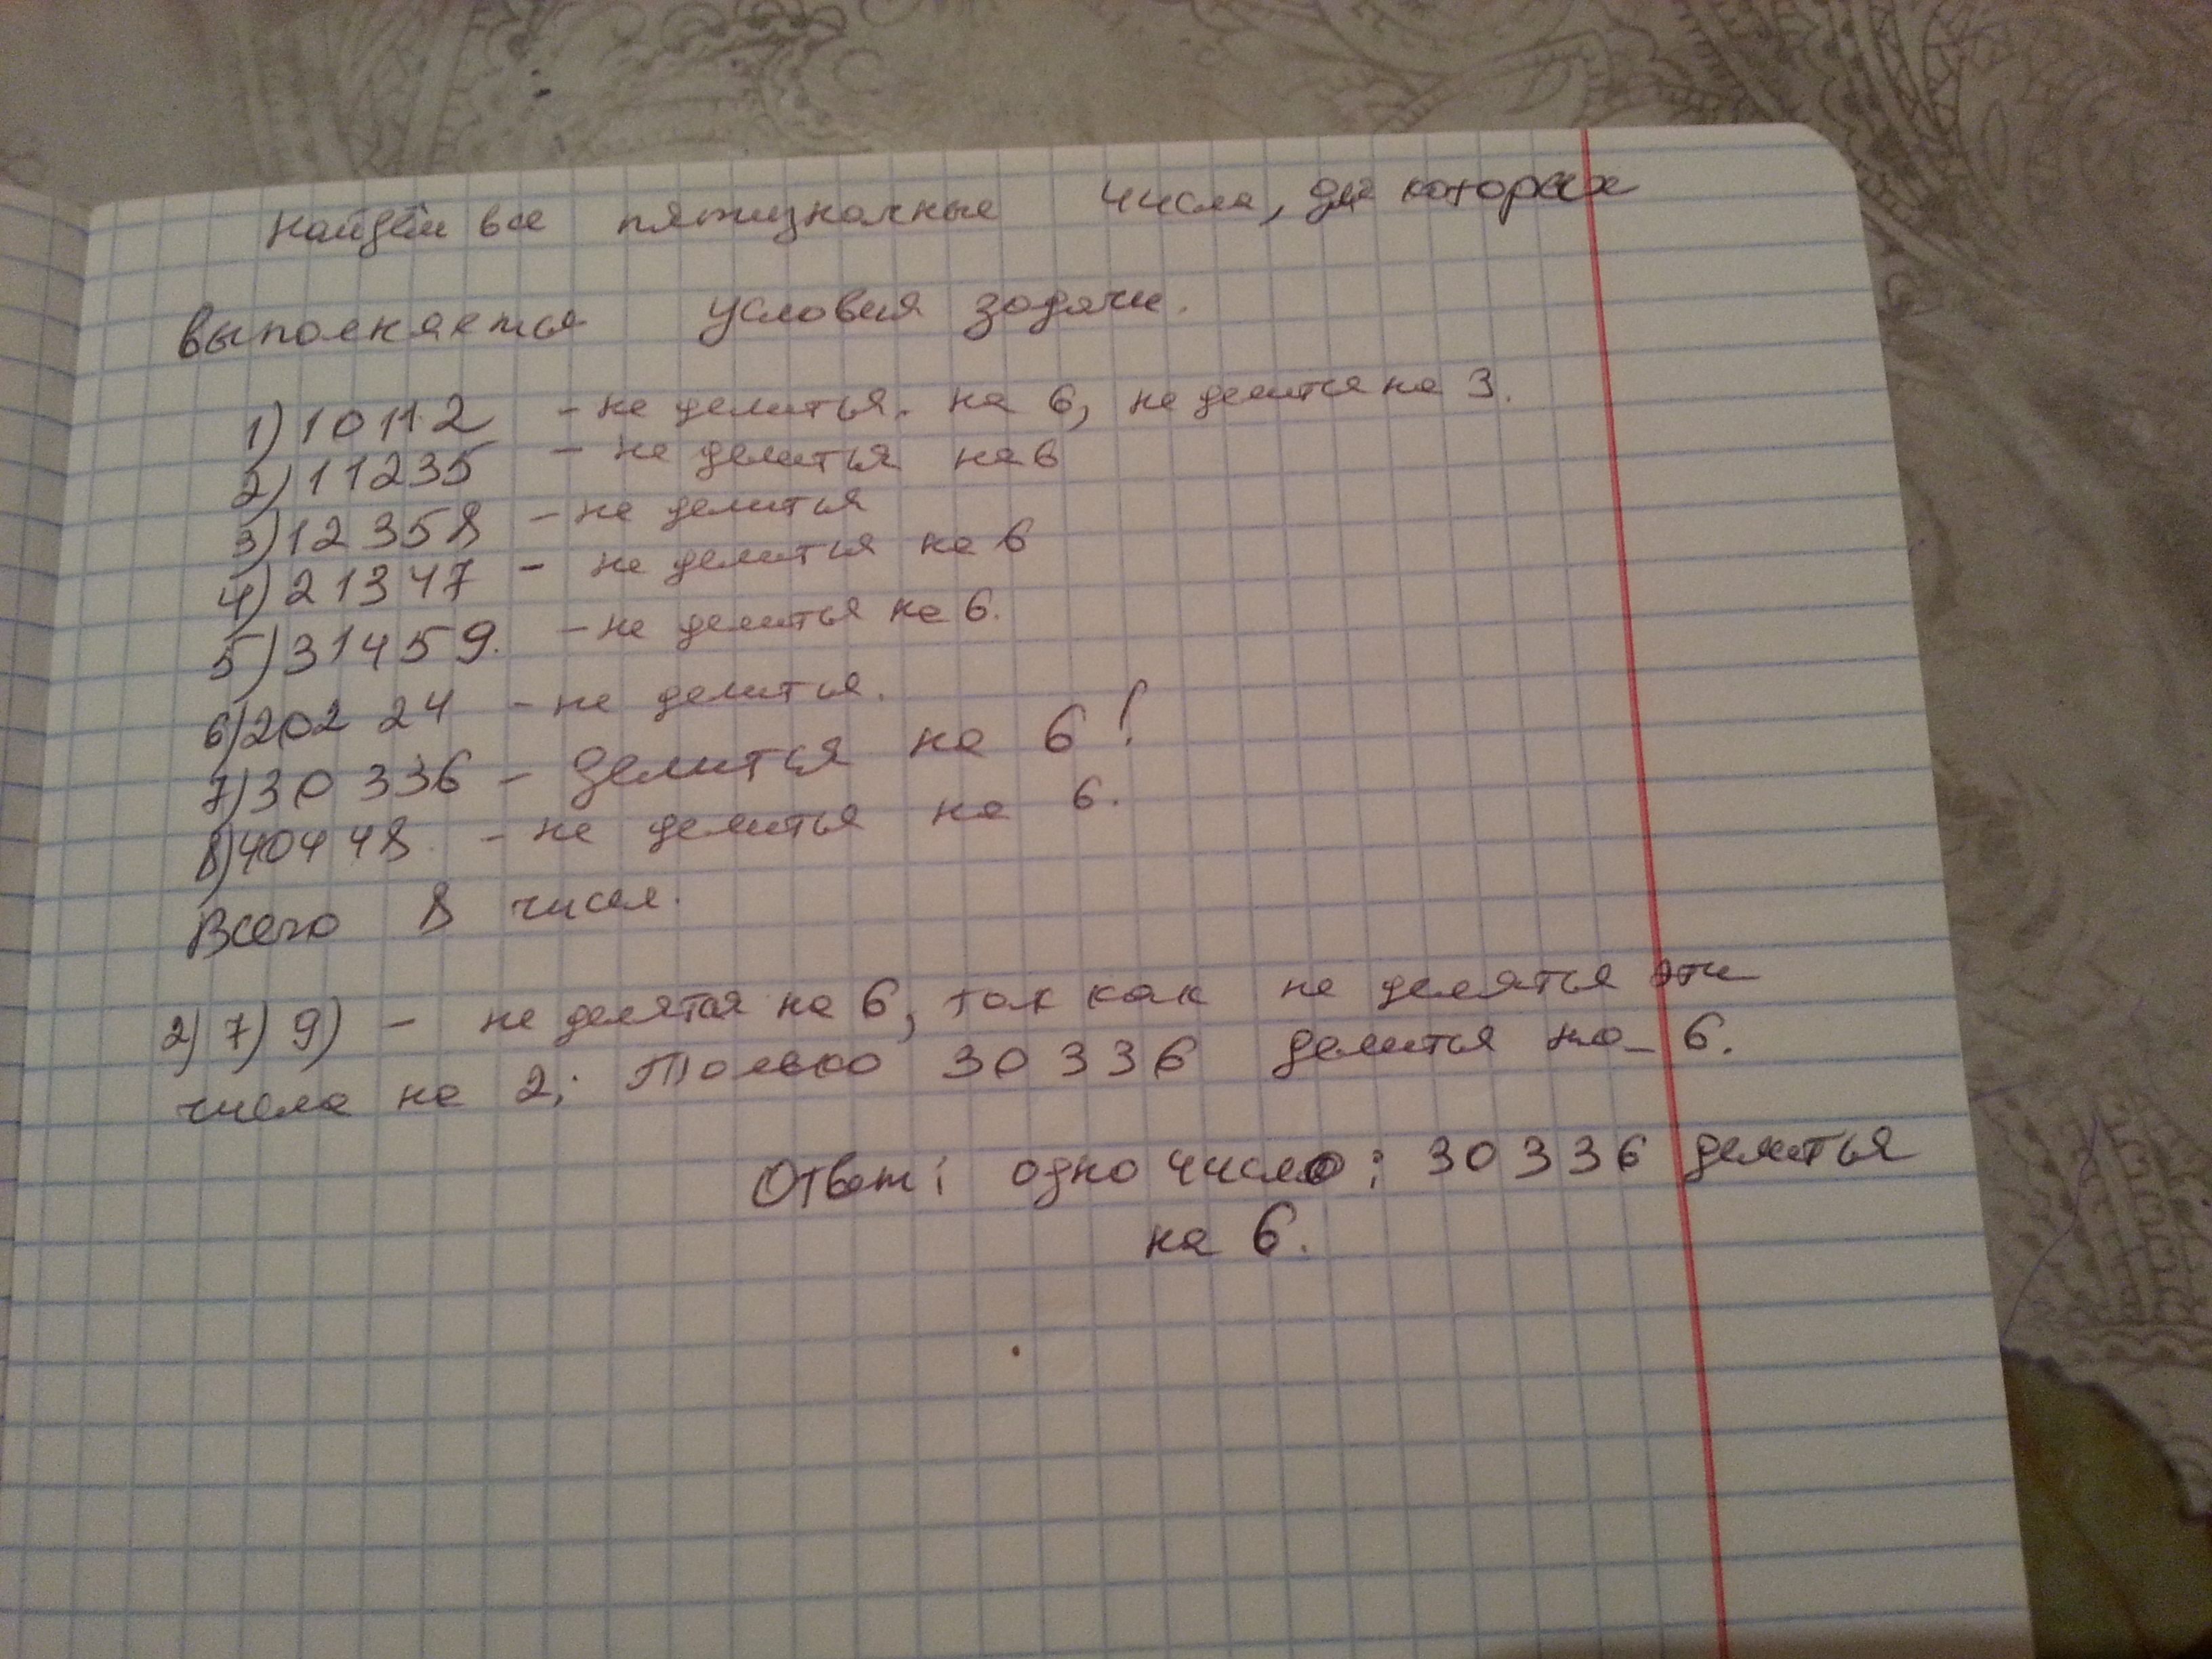 Найдём все пятизначные числа, для которых
выполняется условия задачи.
1) 10112 - не делиться. на 6, не делится на 3.
2) 11235 - не делиться на 6
3) 12358 - не делиться
4) 21347 - не делиться на 6
5) 31459. - не делиться на 6.
6) 20224 - не делиться.
7) 30336 - делиться на 6!
8) 40448. - не делиться на 6.
Всего 8 чисел.
2) 7) 9) - не делятся на 6, так как не делятся эти
числа на 2; Только 30336 делиться на 6.
Ответ: одно число: 30336 делиться
на 6.